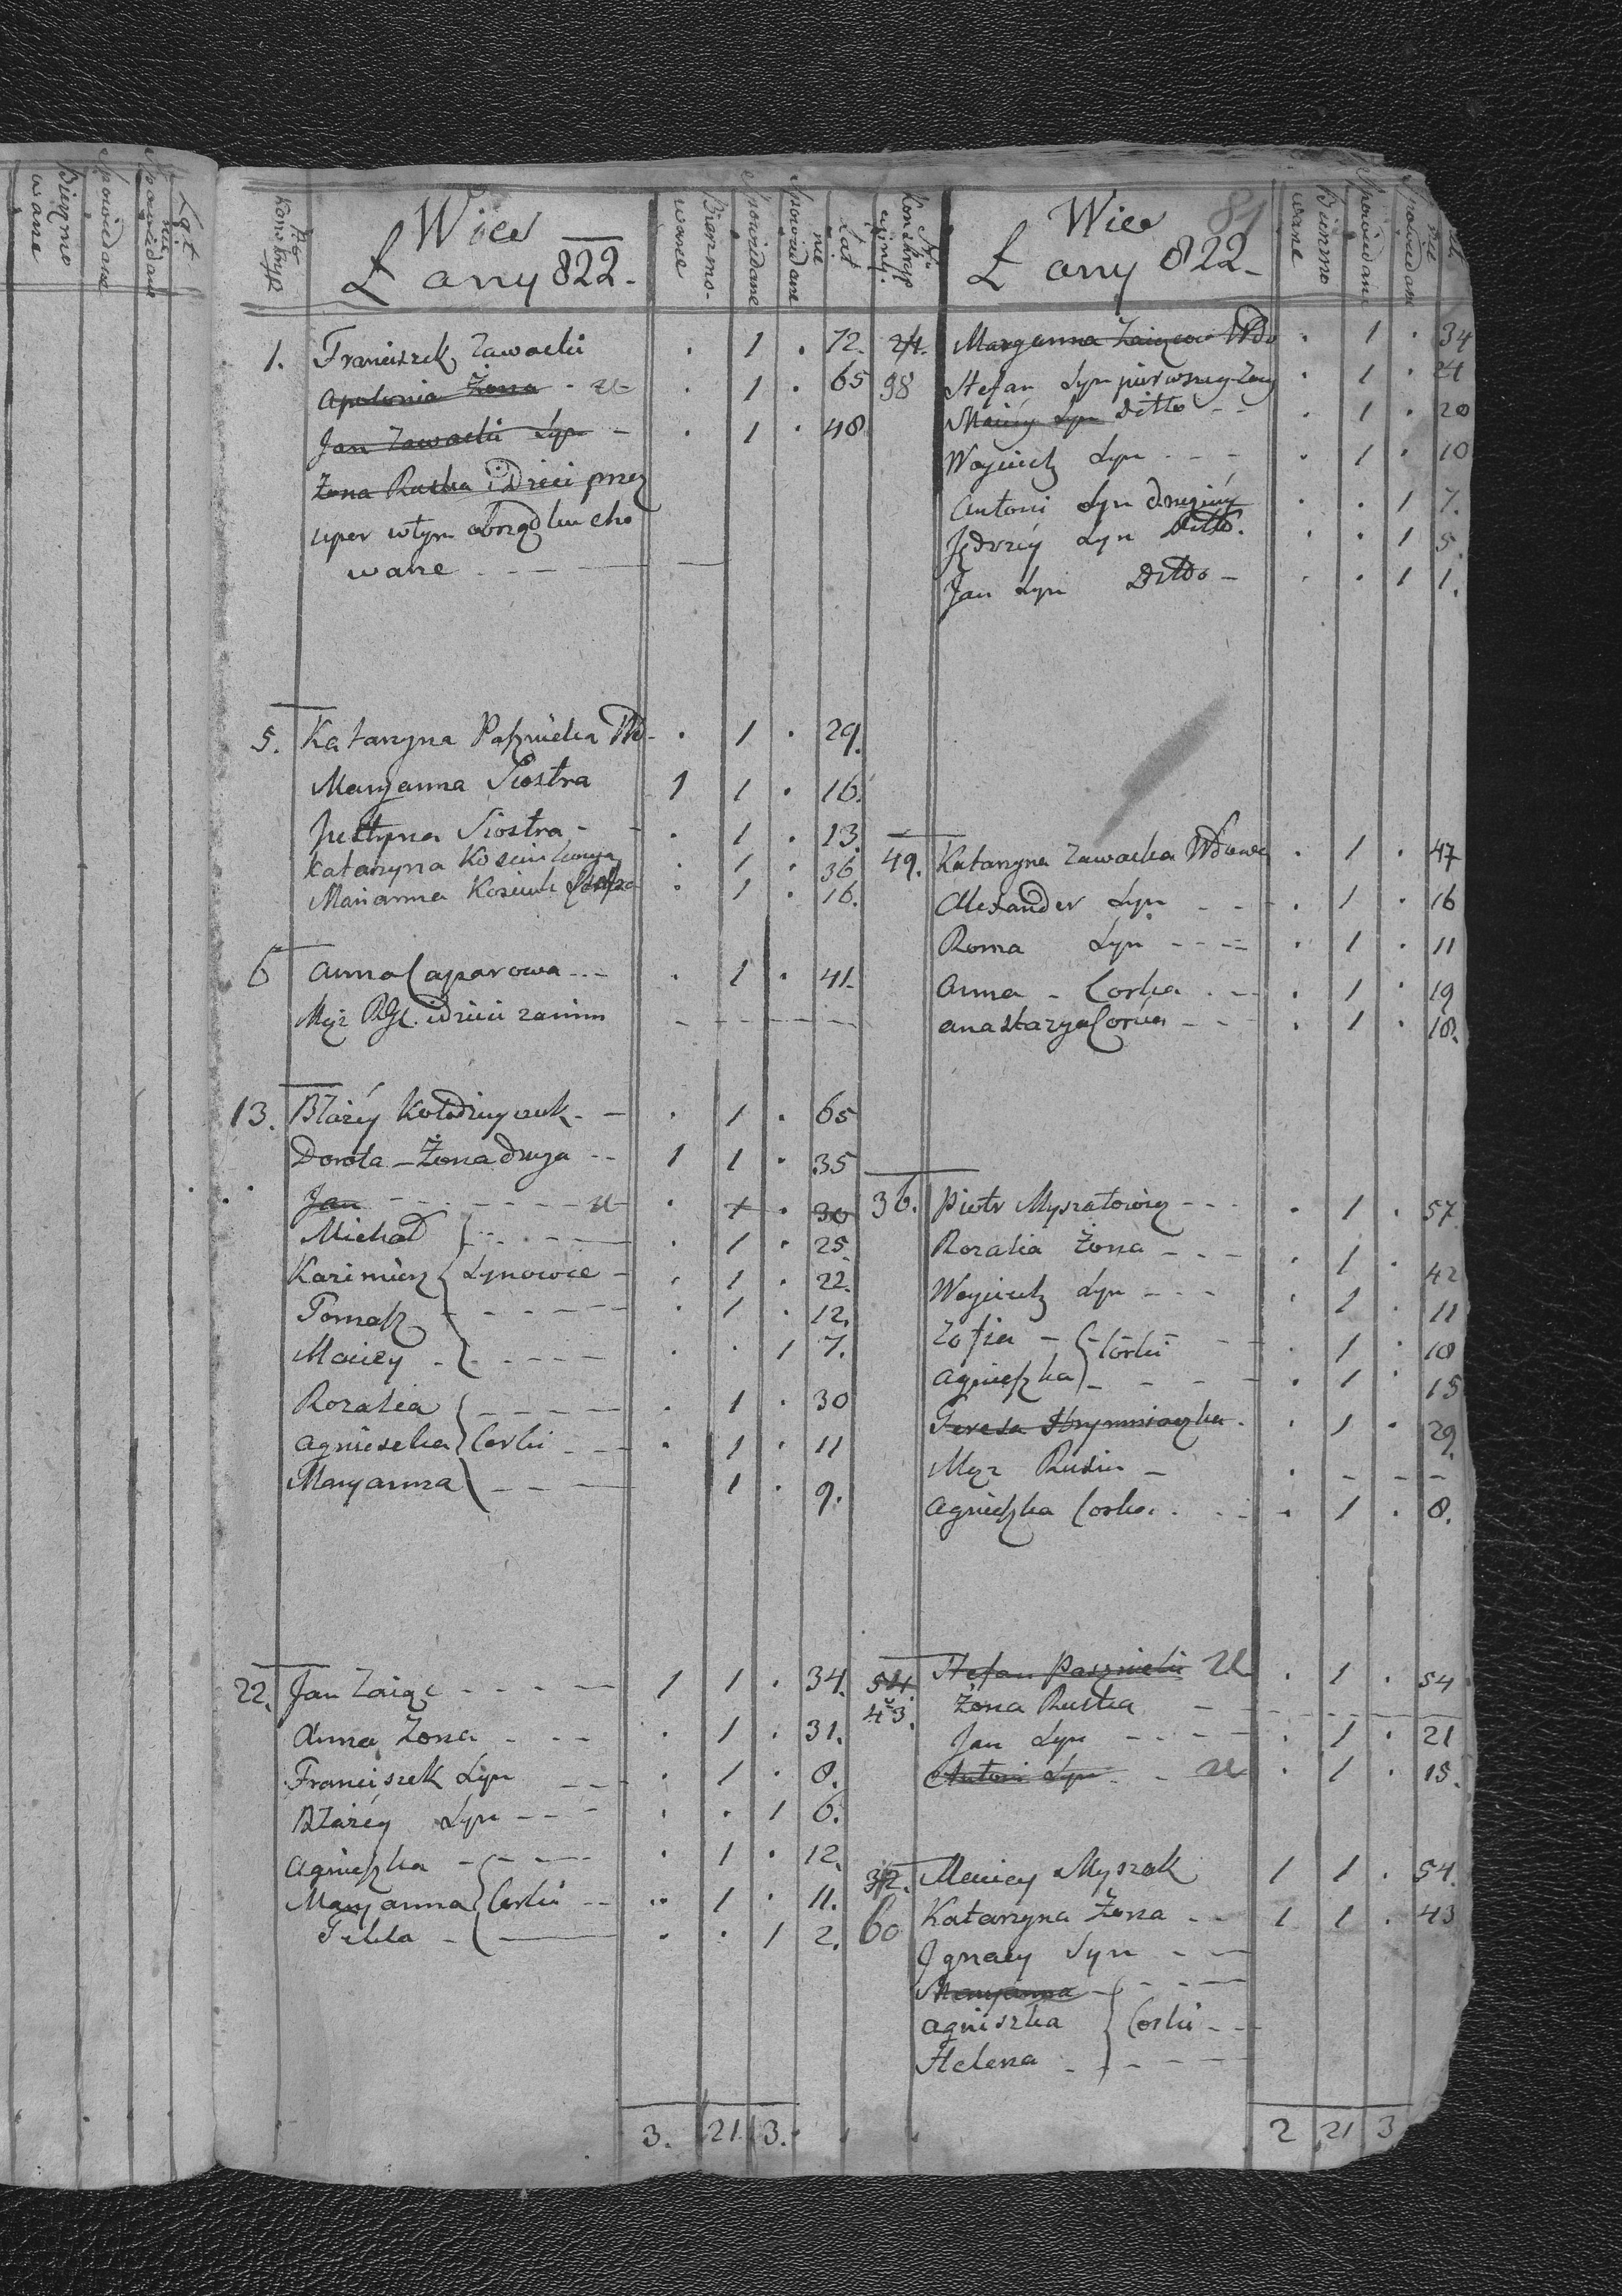 Nro Konskryp
Wieś
Łany 822.
Bierzmowane
Spowiadane
nie Spowiadane
Lat
1. Franciszek Zawacki . 1 . 72.
Apolonia Żona - u . 1 . 65
Jan Zawacki Syn - . 1 . 48
Żona Ruska i Dzieci przez
uper w tym obrządku cho
wane
5. Katarzyna Paznicka Wd. . 1 . 29.
Maryanna Siostra 1 1 . 16.
Justyna Siostra - . 1 . 13.
Katarzyna . 1 . 36
Marianna . 1 . 16.
6 Anna Caparowa . 1 . 41.
Mąż RGl. i dzieci za nim
13. Błażey Kołodziyczuk - . 1 . 65
Dorota - Żona druga 1 1 . 35
Jan - u . 1 . 30
Michał . 1 . 25.
Kazimierz Synowie . 1 . 22.
Tomasz . 1 . 12.
Maciey . . 1 7.
Rozalia . 1 . 30
Agnieszka Corki . 1 . 11
Maryanna 1 . 9.
22. Jan Zaiąc 1 1 . 34.
Anna Żona . 1 . 31.
Franciszek Syn . 1 . 8.
Błażey Syn . . 1 6.
Agnieszka . 1 . 12.
Maryanna Corki . 1 . 11.
Tekla . . 1 2.
3. 21 3.
Nro Konskrypcyiny.
Wieś 81
Łany 822
Bierzmowane
Spowiadane
nie Spowiadane
24. Maryanna Zaiącowa Wdo . 1 . 34
98 Stefan Syn pierwszey Żony . 1 . 21
Maciey Syn Ditto . 1 . 20
Woyciech Syn . 1 . 10
Antoni Syn drugiey . . 1 7.
Jędrzey Syn Ditto. . . 1 5.
Jan Syn Ditto - . . 1 1.
49. Katarzyna Zawacka Wdowa . 1 . 47
Alexander Syn . 1 . 16
Roma Syn . 1 . 11
Anna - Corka . 1 . 19
Anastazya Corka . 1 . 18.
36. Piotr Myszatowicz . 1 . 57.
Rozalia Żona . 1 . 42
Woyciech Syn . 1 . 11
Zofia Corki . 1 . 18
Agnieszka . 1 . 15
Teresa . 1 . 29.
Mąż Rusin -
Agnieszka Corka . 1 . 8.
54. Stefan Pasznicki U . 1 . 54
43. Żona Ruska
Jan Syn . 1 . 21
Antoni Syn - U . 1 . 15.
32. Maciey Myszak 1 1 . 54.
60 Katarzyna Żona 1 1 . 43
Ignacy Syn
Maryanna
Agniszka Corki
Helena
2 21 3